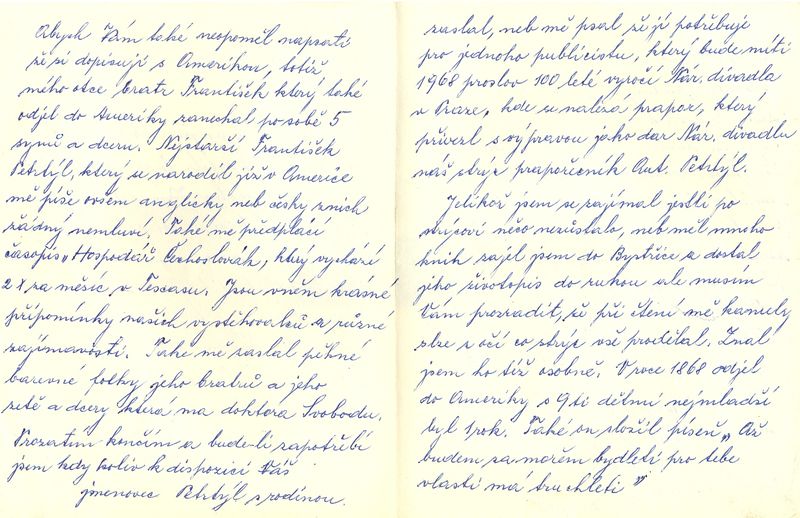 Abych Vám také neopoměl napsati
že si dopisuji s Amerikou, totiž
mého otce bratr František který také
odjel do Ameriky zanechal po sobě 5
synů a dceru. Nejstarší František
Petrtýl, který se narodil již v Americe
mě píše ovšem anglicky neb česky z nich
žádný nemluví. Také mě předplácí
časopis „Hospodář Čechoslovák, který vychází
2 X za měsíc v Texasu. Jsou v něm krásné
připomínky našich vystěhovalců a různé
zajímavosti. Také mě zaslal pěkné
barevné fotky, jeho bratrů a jeho
zetě a dcery která má doktora Svobodu.
Prozatím končím a bude-li zapotřebí
jsem kdy koliv k dispozici Váš
jmenovec Petrtýl s rodinou.
zaslal, neb mě psal že jí potřebuje
pro jednoho publicistu, který bude míti
1968 proslov 100 leté výročí Nár. divadla
v Praze, kde se nalézá prapor, který
přivezl s výpravou jako dar Nár. divadlu
náš strýc praporečník Ant. Petrtýl.
Jelikož jsem se zajímal jestli po
strýcovi něco nezůstalo, neb měl mnoho
knih zajel jsem do Bystřice a dostal
jeho životopis do rukou ale musím
Vám prozradit, že při čtení mě kanuly
slze z očí co strýc vše prodělal. Znal
jsem ho též osobně. V roce 1868 odjel
do Ameriky s 9ti dětmi nejmladší
byl 1 rok. Také on složil píseň „Až
budem za mořem bydleti pro tebe
vlasti má truchleti"